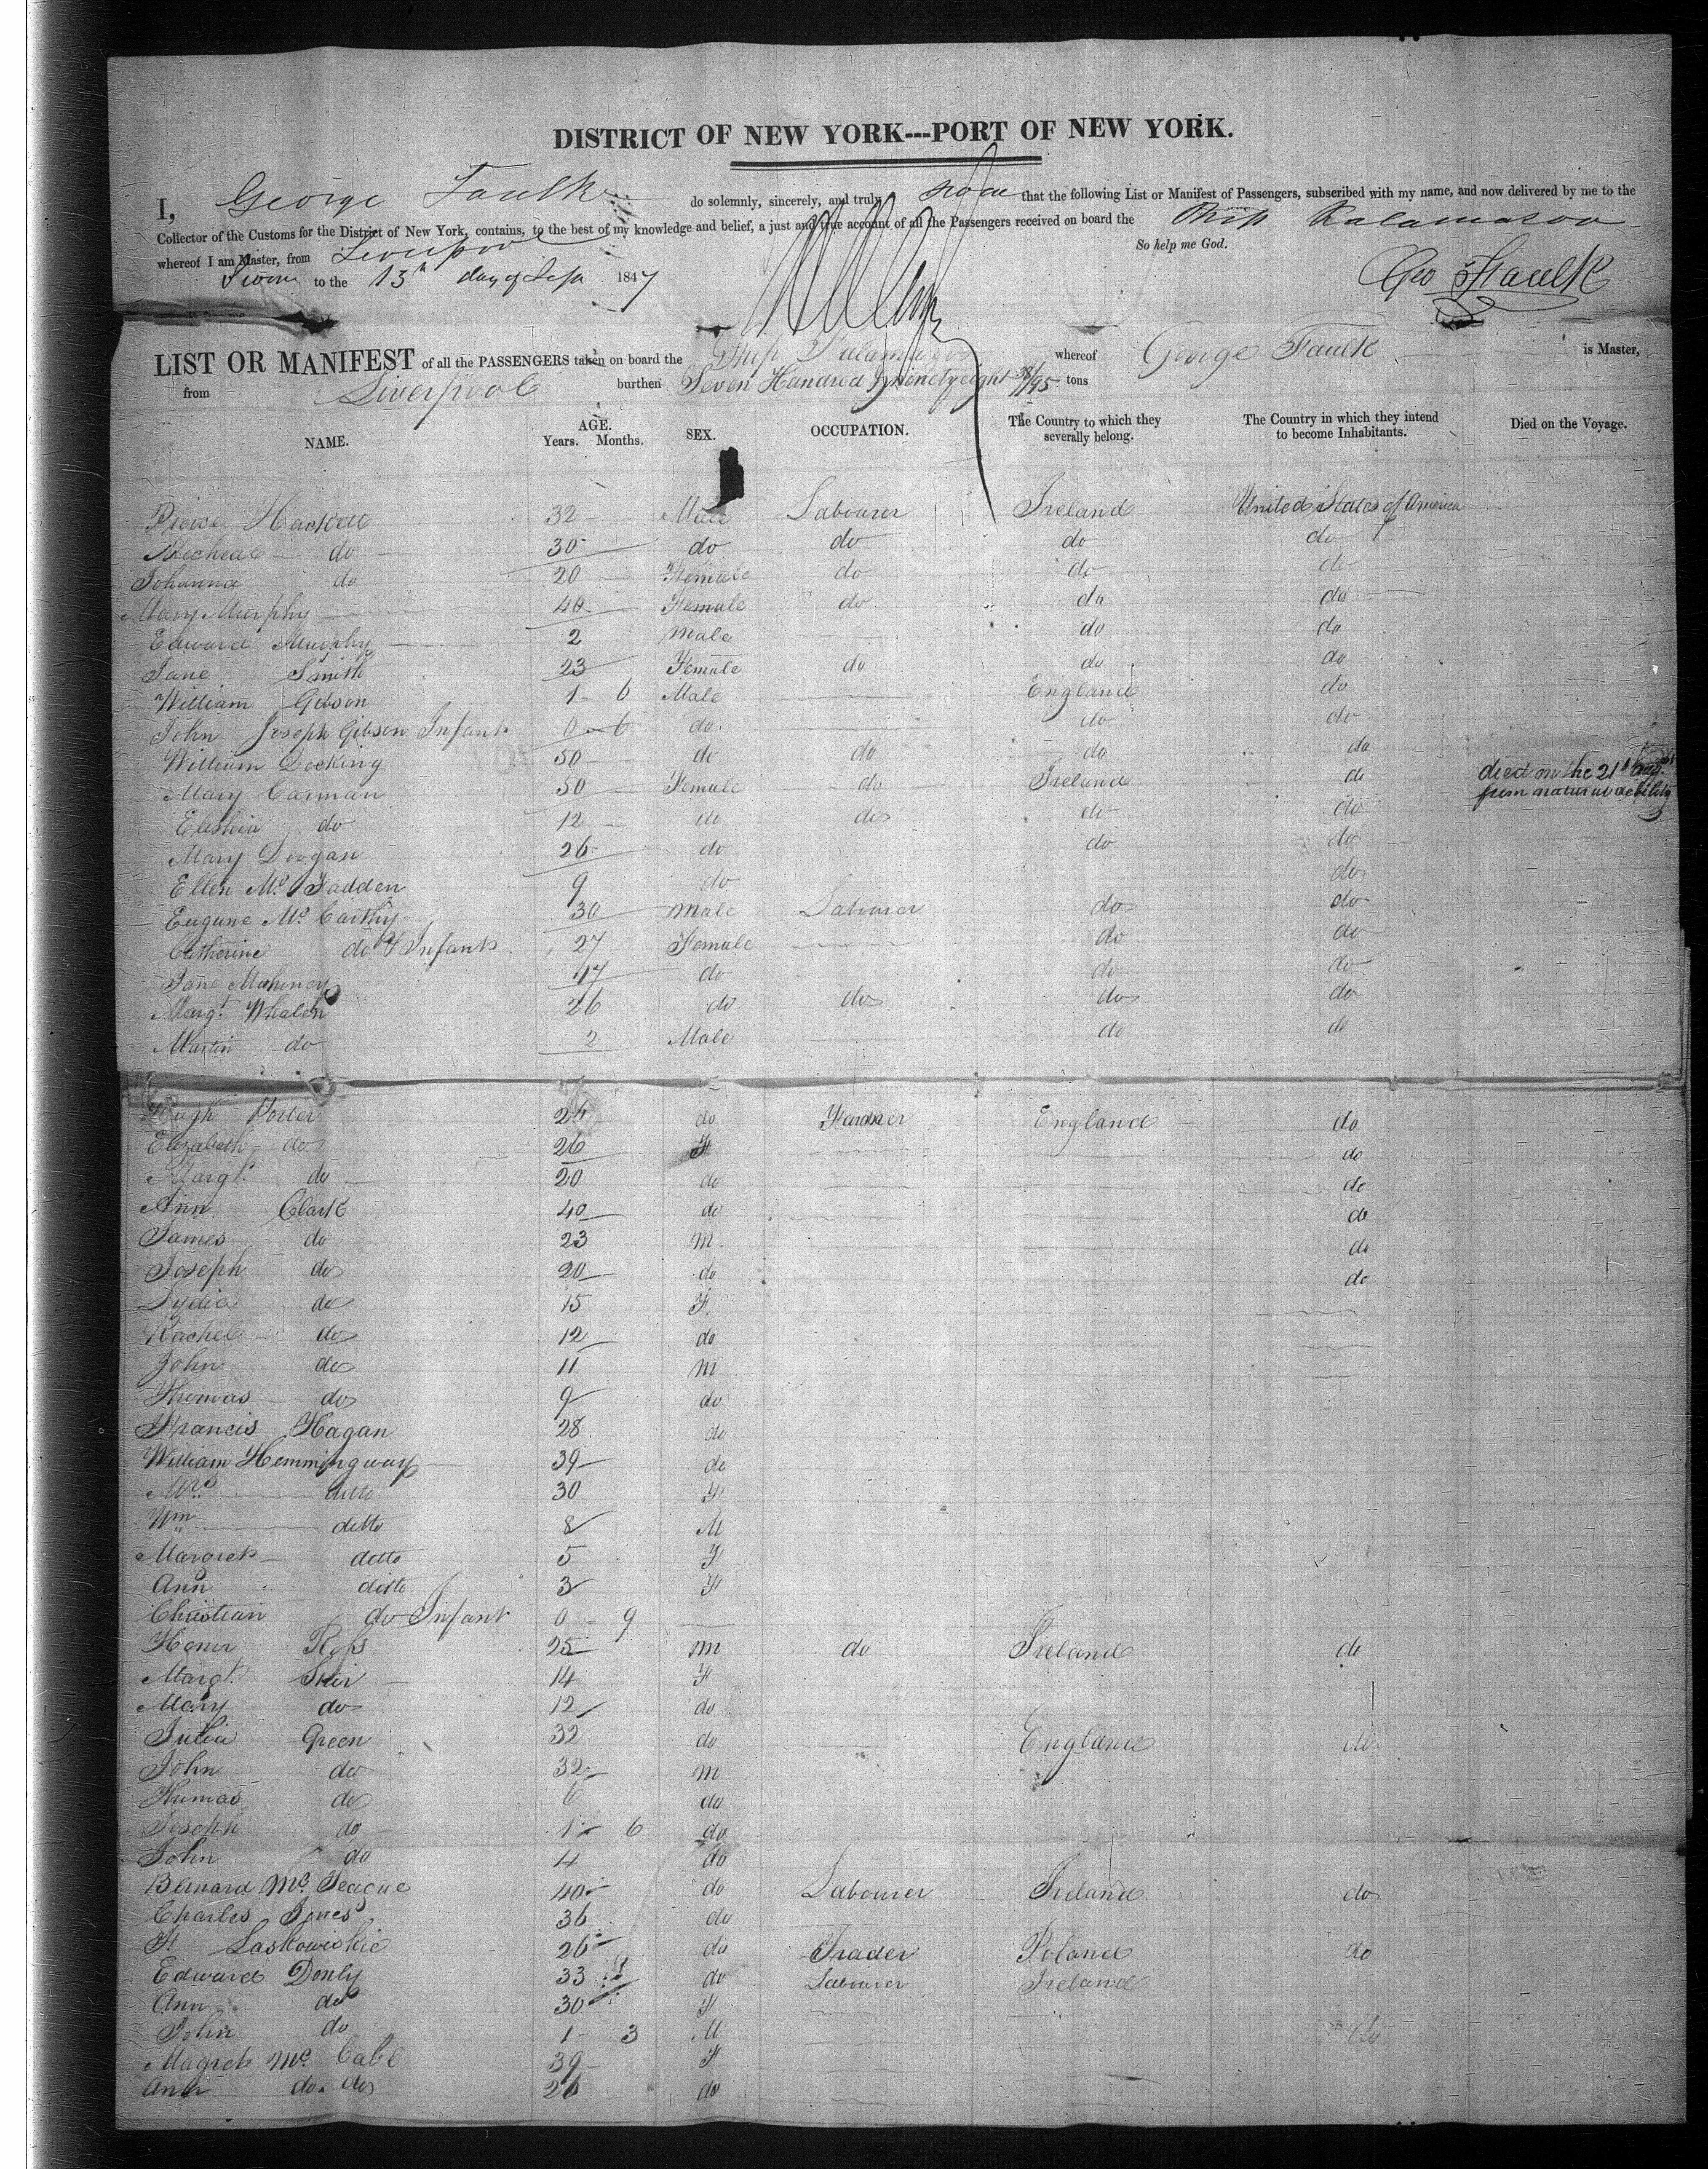 DISTRICT OF NEW YORK---PORT OF NEW YORK.
I, George Faulk do solemnly, sincerely, and truly swear that the following List or Manifest of Passengers, subscribed with my name, and now delivered by me to the
Collector of the Customs for the District of New York, contains, to the best of my knowledge and belief, a just and true account of all the Passengers received on board the Ship Kalamazoo
whereof I am Master, from Liverpool So help me God.
Sworn to the 13th day of Sept 1847 Geo Faulk
LIST OR MANIFEST of all the PASSENGERS taken on board the Ship Kalamazoo whereof George Faulk is Master,
from Liverpool burthen Seven Hundred ninety eight /95 tons
NAME. AGE. Years. Months. SEX. OCCUPATION. The Country to which they severally belong. The Country in which they intend to become Inhabitants. Died on the Voyage.
Pierce Hackett 32 Male Labourer Ireland United States of America
Micheal do 30 do do do do
Johanna do 20 Female do do do
Mary Murphy 40 Female do do do
Edward Murphy 2 male do do
Jane Smith 23 Female do do do
William Gibson 1 6 Male England do
John Joseph Gibson Infant 0 6 do do do
William Docking 50 do do do do
Mary Carman 50 Female do Ireland do died on the 21st Aug. from natural debility
Elishia do 12 do do do do
Mary Doogan 26 do do do
Ellen Mc Fadden 9 do do
Eugune Mc Carthy 30 male Labourer do do
Catherine do & Infant 27 Female do do
Jane Mahoney 17 do do do
Margt. Whalen 26 do do do do
Martin do 2 Male do do
Hugh Porter 24 do Farmer England do
Elizabeth do 26 F do
Margt. do 20 do do
Ann Clark 40 do do
James do 23 m do
Joseph do 20 do do
Lydia do 15 F
Rachel do 12 do
John do 11 m
Thomas do 9 do
Francis Hagan 28 do
William Hemmingway 39 do
Mrs ditto 30 F
Wm ditto 8 M
Margret ditto 5 F
Ann ditto 3 F
Christian do Infant 0 9
Honer Ross 25 m do Ireland do
Margt. 14 F
Mary do 12 do
Julia Green 32 do England do
John do 32 m
Thomas do 6 do
Joseph do 1 6 do
John do 4 do
Barnard Mc Teague 40 do Labourer Ireland do
Charles Jones 36 do
F Laskowiskie 26 do Trader Poland do
Edward Donly 33 do Labourer Ireland
Ann do 30 F
John do 1 3 M do
Magret Mc Cabe 39 F
Ann do do 26 do